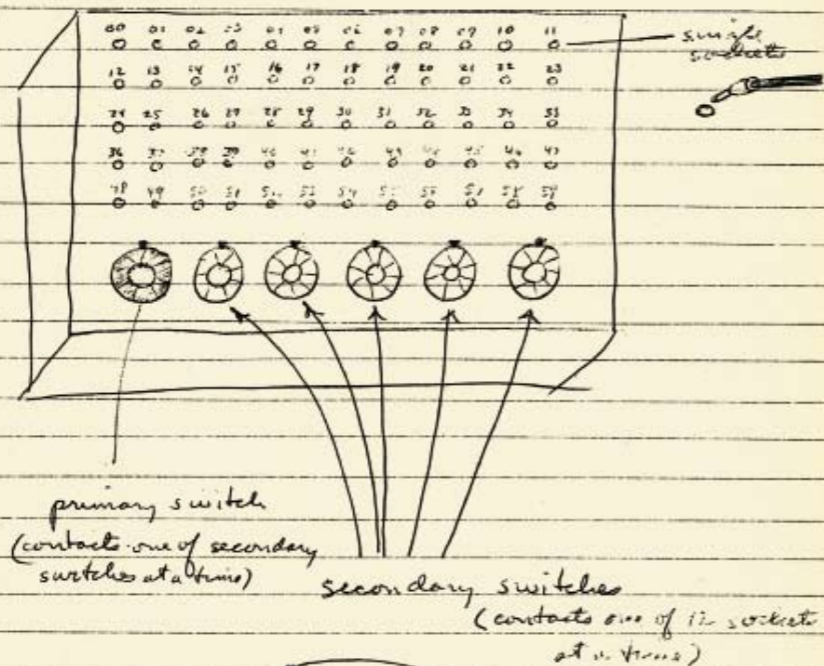 00 01 02 03 04 05 06 07 08 09 10 11
single
sockets
12 13 14 15 16 17 18 19 20 21 22 23
24 25 26 27 28 29 30 31 32 33 34 35
36 37 38 39 40 41 42 43 44 45 46 47
48 49 50 51 52 53 54 55 56 57 58 59
primary switch
(contacts one of secondary
switches at a time)
secondary switches
(contacts one of 12 sockets
at a time)